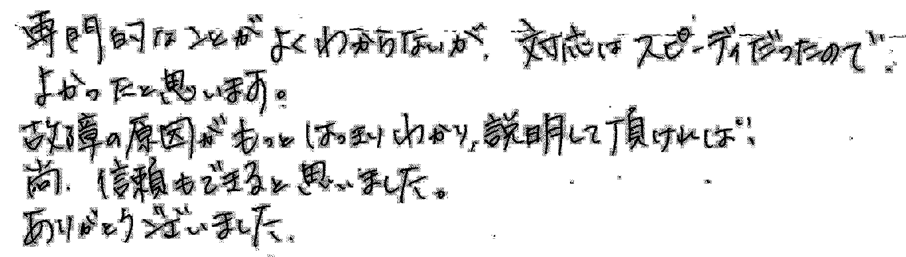 専門的なことがよくわからないが、対応はスピーディだったので、
よかったと思います。
故障の原因がもっとはっきりわかり、説明して頂ければ、
尚、信頼もできると思いました。
ありがとうございました。